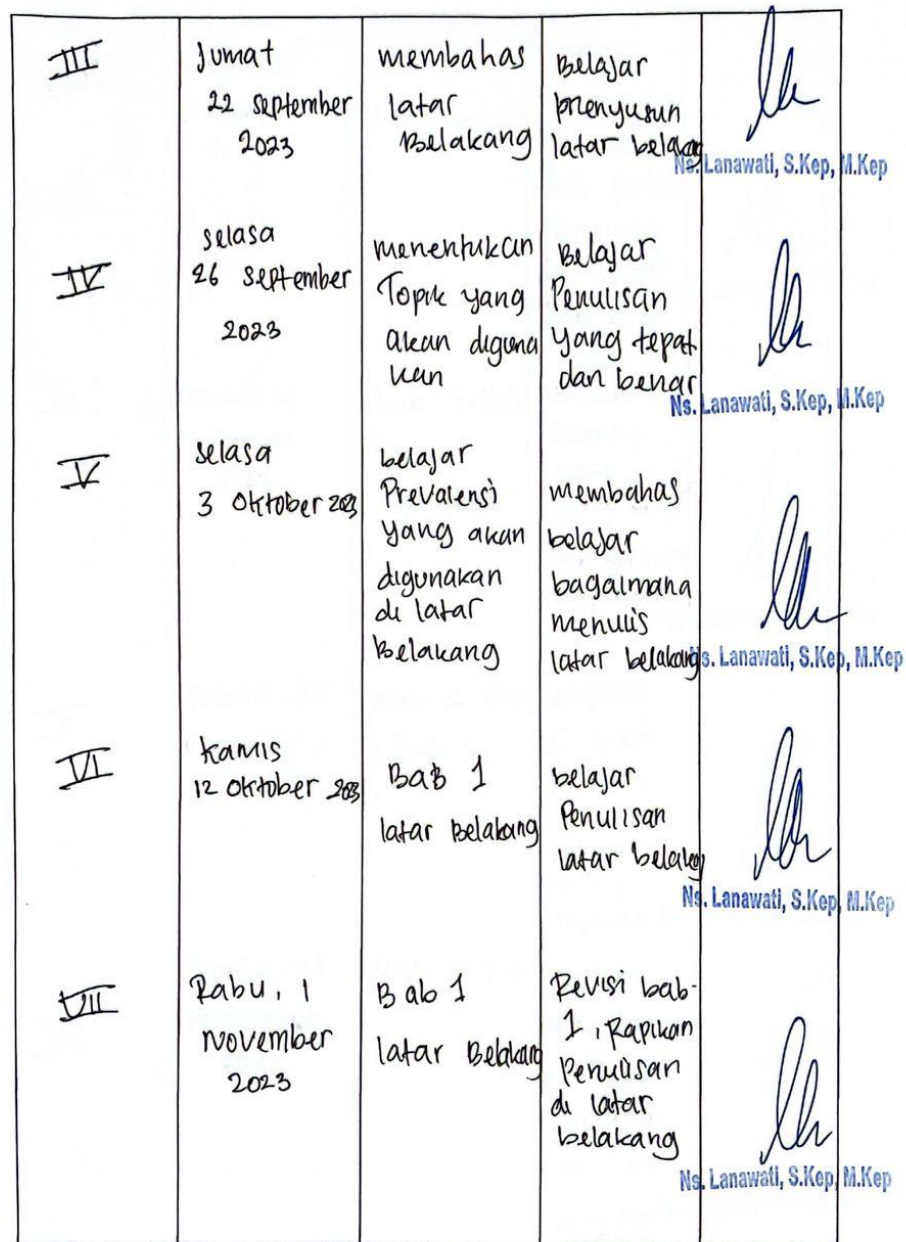 III
Jumat
22 September
2023
membahas
latar
Belakang
Belajar
prenyusun
latar belakang
Ns. Lanawati, S.Kep, M.Kep
IV
selasa
26 September
2023
menentukan
Topik yang
akan diguna
kan
Belajar
Penulisan
yang tepat
dan benar
Ns. Lanawati, S.Kep, M.Kep
V
selasa
3 Oktober 2023
belajar
Prevalensi
yang akan
digunakan
di latar
Belakang
membahas
belajar
bagaimana
menulis
latar belakang
Ns. Lanawati, S.Kep, M.Kep
VI
kamis
12 Oktober 2023
Bab 1
latar Belakang
belajar
Penulisan
latar belakang
Ns. Lanawati, S.Kep, M.Kep
VII
Rabu, 1
November
2023
Bab 1
latar Belakang
Revisi bab-
1, Rapikan
Penulisan
di latar
belakang
Ns. Lanawati, S.Kep, M.Kep